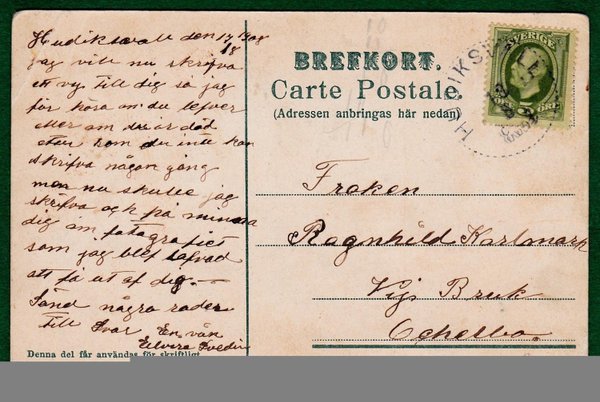 Hudiksvall den 17/8 1908
jag vill nu skrifva
ett vy till dig så jag
får höra om du lefver
eller om du är död
efter som du inte kan
skrifva någon gång
men nu skulle jag
skrifva och på minna
dig om fotografiet
som jag blef lofvad
att få ut af dig.
Sänd några rader
till Svar En vän
Elvira Svedin
Denna del får användas för skriftligt
BREFKORT.
Carte Postale
(Adressen anbringas här nedan)
SVERIGE
ÖRE
Fröken
Ragnhild Karlmark
Vij Bruk
Ockelbo.